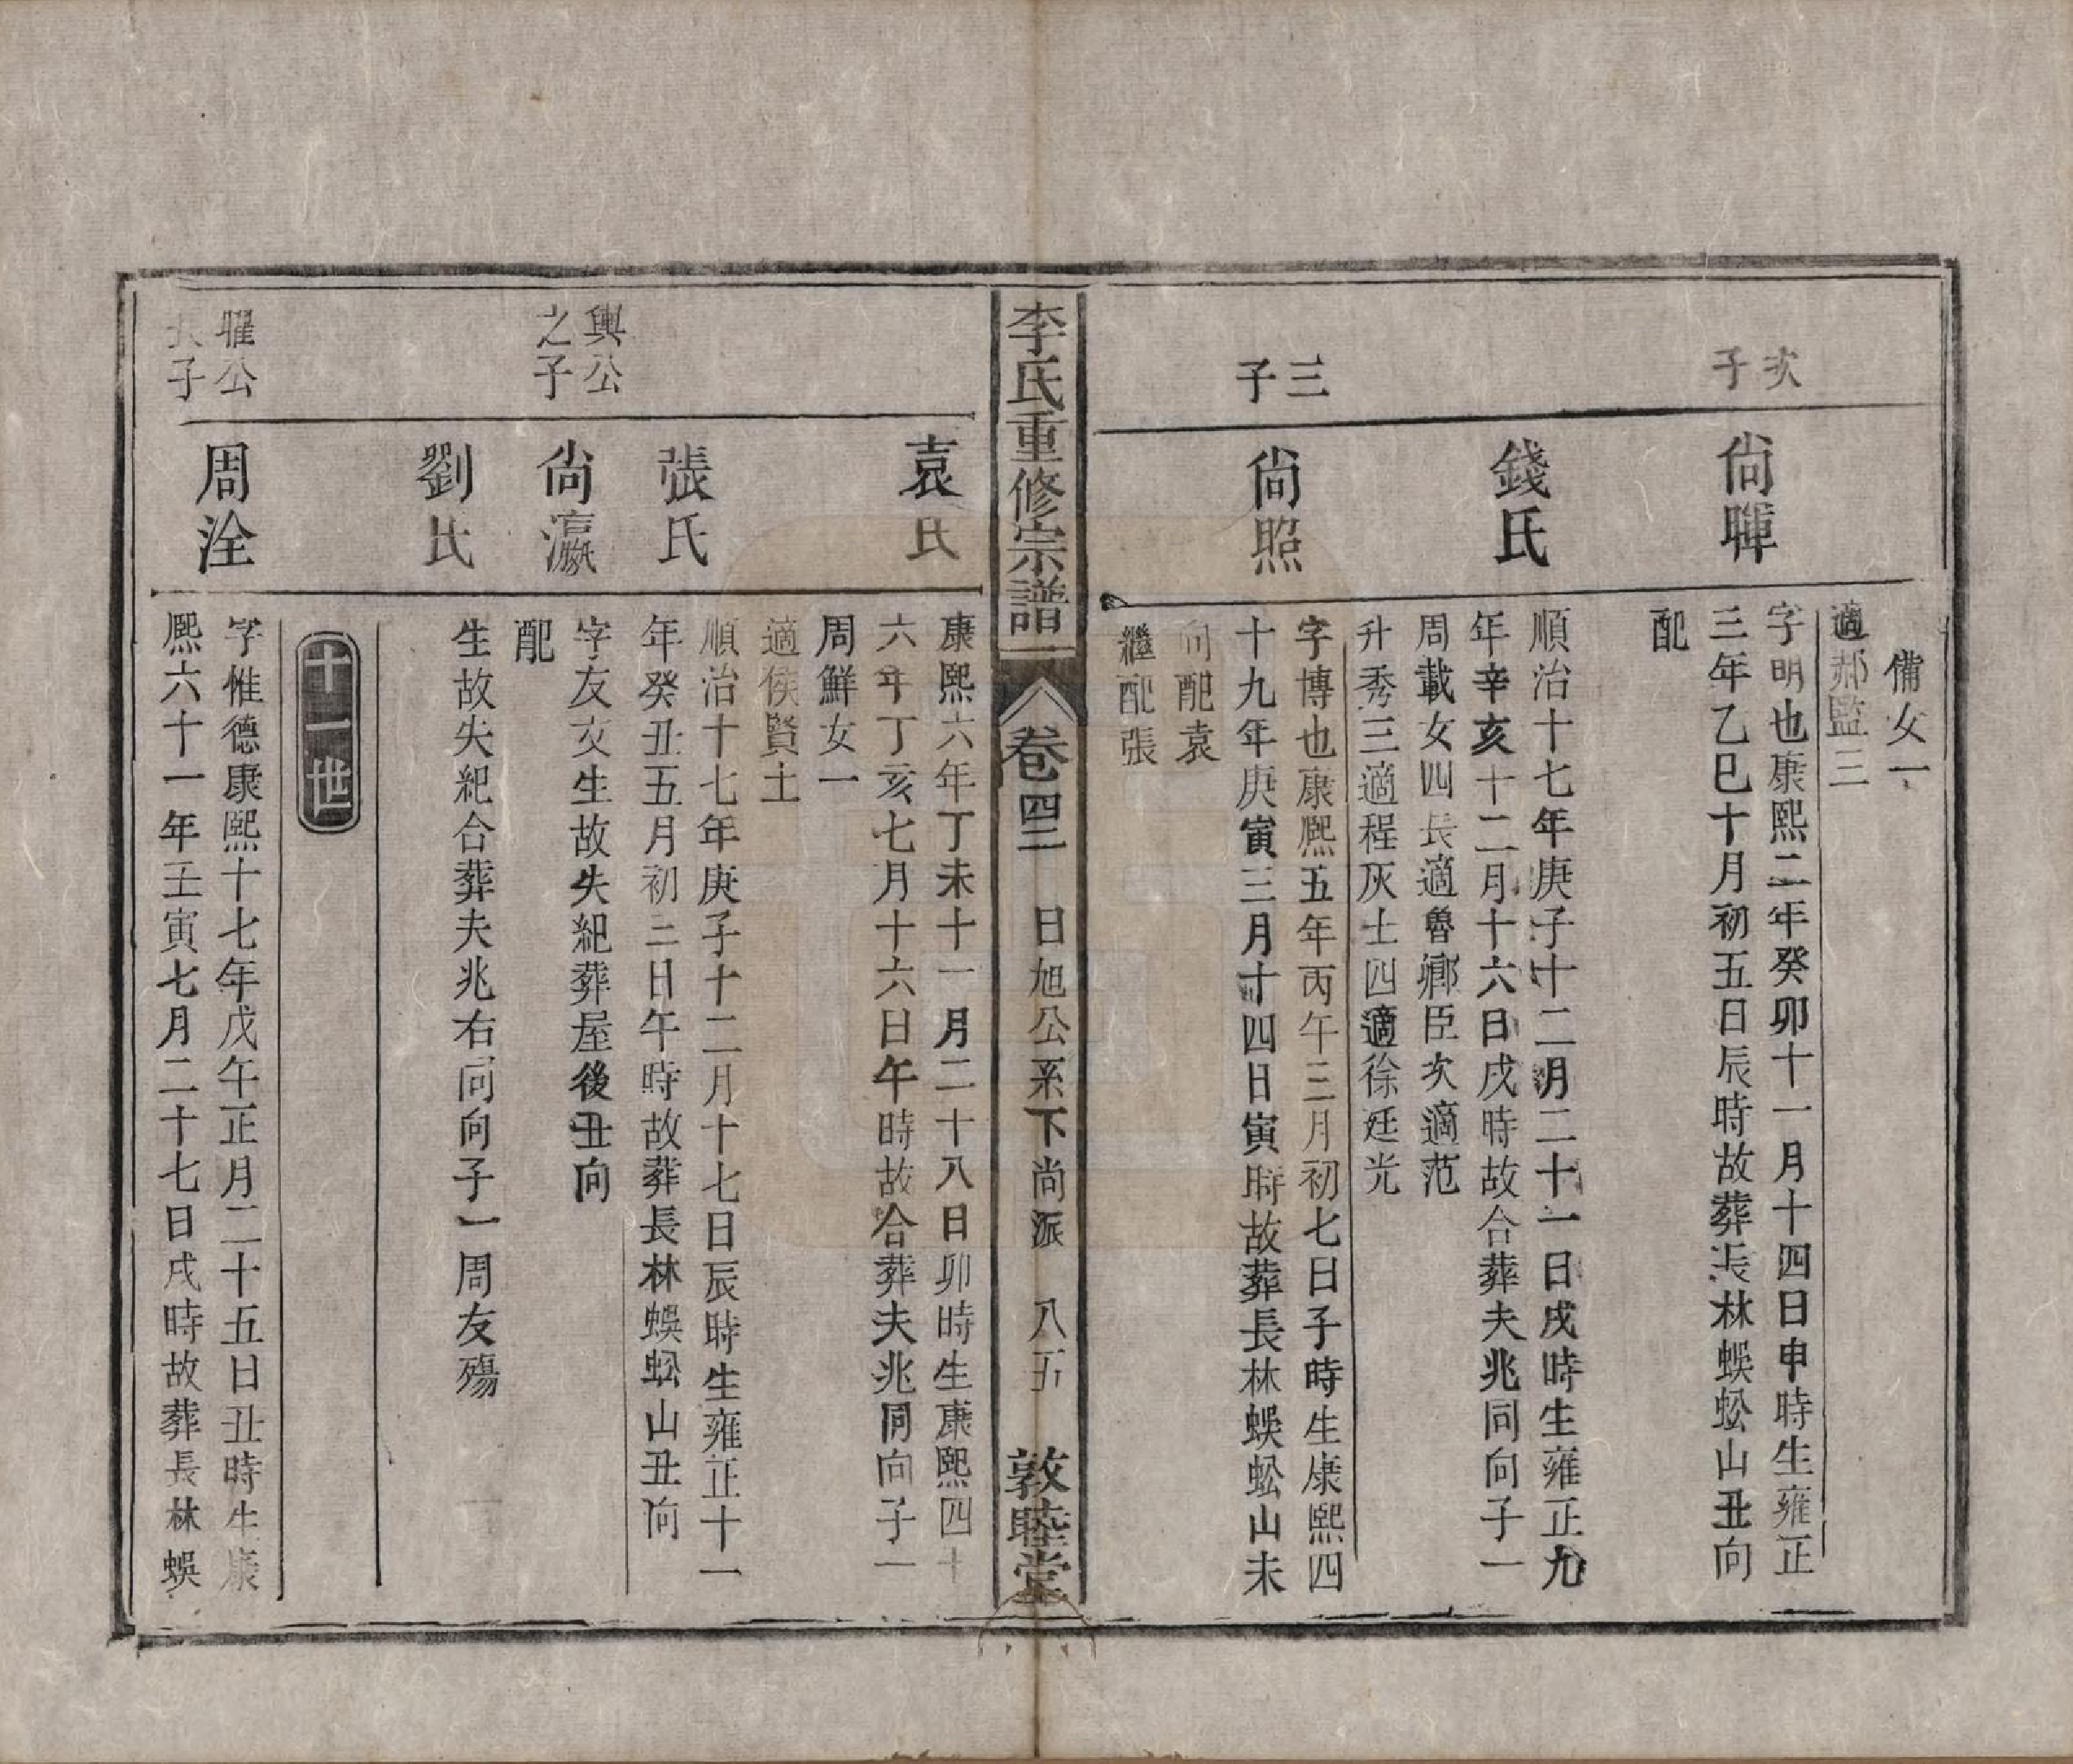 備女一
適郝監三
次
子
尙暉
字明也康熙二年癸卯十一月十四日申時生雍正
三年乙巳十月初五日辰時故葬長林蜈蚣山丑向
配
錢氏
順治十七年庚子十二月二十一日戌時生雍正九
年辛亥十二月十六日戌時故合葬夫兆同向子一
周載女四長適魯鄉臣次適范
升秀三適程灰士四適徐廷光
三
子
尙照
字博也康熙五年丙午三月初七日子時生康熙四
十九年庚寅三月十四日寅時故葬長林蜈蚣山未
向配袁
繼配張
李氏重修宗譜
卷四二
日旭公系下尚派
八五
敦睦堂
袁氏
康熙六年丁未十一月二十八日卯時生康熙四十
六年丁亥七月十六日午時故合葬夫兆同向子一
周鮮女一
適侯賢士
張氏
順治十七年庚子十二月十七日辰時生雍正十一
年癸丑五月初三日午時故葬長林蜈蚣山丑向
興公
之子
尙瀛
字友文生故失紀葬屋後丑向
配
劉氏
生故失紀合葬夫兆右同向子一周友殤
十一世
暒公
長子
周洤
字惟德康熙十七年戊午正月二十五日丑時生康
熙六十一年壬寅七月二十七日戌時故葬長林蜈